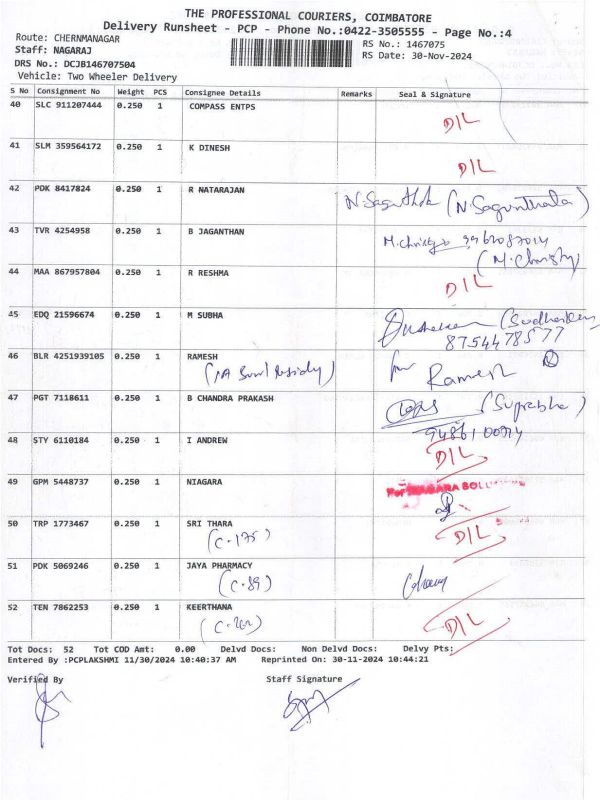 THE PROFESSIONAL COURIERS, COIMBATORE
Delivery Runsheet - PCP - Phone No.:0422-3505555 - Page No.:4
Route: CHERNMANAGAR
Staff: NAGARAJ
RS No.: 1467075
DRS No.: DCJB146707504
RS Date: 30-Nov-2024
Vehicle: Two Wheeler Delivery
S No Consignment No Weight PCS Consignee Details Remarks Seal & Signature
40 SLC 911207444 0.250 1 COMPASS ENTPS
D/L
41 SLM 359564172 0.250 1 K DINESH
D/L
42 PDK 8417824 0.250 1 R NATARAJAN
(N. Sagunthala)
43 TVR 4254958 0.250 1 B JAGANTHAN
(M. Christy)
44 MAA 867957804 0.250 1 R RESHMA
D/L
45 EDQ 21596674 0.250 1 M SUBHA
8754478577
46 BLR 4251939105 0.250 1 RAMESH
for Ramesh
47 PGT 7118611 0.250 1 B CHANDRA PRAKASH
(Suprabha)
48 STY 6110184 0.250 1 I ANDREW
D/L
49 GPM 5448737 0.250 1 NIAGARA
50 TRP 1773467 0.250 1 SRI THARA
(C-175)
D/L
51 PDK 5069246 0.250 1 JAYA PHARMACY
(C-89)
52 TEN 7862253 0.250 1 KEERTHANA
D/L
Tot Docs: 52 Tot COD Amt: 0.00 Delvd Docs: Non Delvd Docs: Delvy Pts:
Entered By :PCPLAKSHMI 11/30/2024 10:40:37 AM Reprinted On: 30-11-2024 10:44:21
Verified By Staff Signature